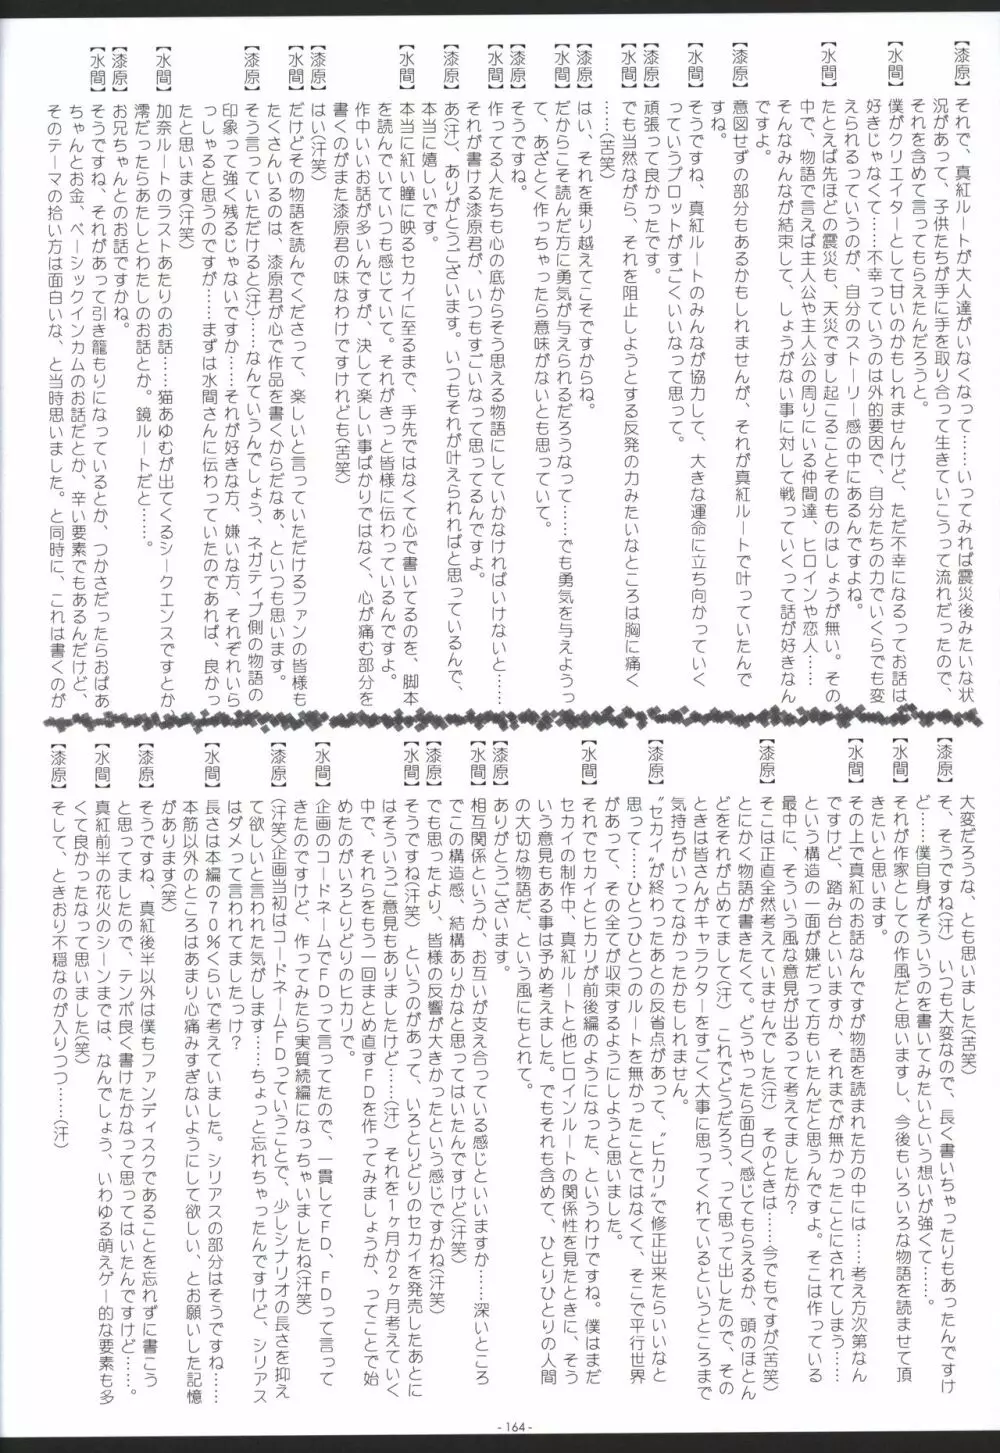 【漆原】それで、真紅ルートが大人達がいなくなって……いってみれば震災後みたいな状
況があって、子供たちが手に手を取り合って生きていこうって流れだったので、
それを含めて言ってもらえたんだろうと。
【水間】僕がクリエイターとして甘いのかもしれませんけど、ただ不幸になるってお話は
好きじゃなくて……不幸っていうのは外的要因で、自分たちの力でいくらでも変
えられるっていうのが、自分のストーリー感の中にあるんですよね。
【水間】たとえば先ほどの震災も、天災ですし起こることそのものはしょうが無い。その
中で、物語で言えば主人公や主人公の周りにいる仲間達、ヒロインや恋人……
そんなみんなが結束して、しょうがない事に対して戦っていくって話が好きなん
ですよ。
【漆原】意図せずの部分もあるかもしれませんが、それが真紅ルートで叶っていたんで
すね。
【水間】そうですね、真紅ルートのみんなが協力して、大きな運命に立ち向かっていく
っていうプロットがすごくいいなって思って。
【漆原】頑張って良かったです。
【水間】でも当然ながら、それを阻止しようとする反発の力みたいなところは胸に痛く
……(苦笑)
【漆原】はい、それを乗り越えてこそですからね。
【水間】だからこそ読んだ方に勇気が与えられるだろうなって……でも勇気を与えようっ
て、あざとく作っちゃったら意味がないとも思っていて。
【漆原】そうですね。
【水間】作ってる人たちも心の底からそう思える物語にしていかなければいけないと……
それが書ける漆原君が、いつもすごいなって思ってるんですよ。
【漆原】あ(汗)、ありがとうございます。いつもそれが叶えられればと思っているんで、
本当に嬉しいです。
【水間】本当に紅い瞳に映るセカイに至るまで、手先ではなくて心で書いてるのを、脚本
を読んでいていつも感じていて。それがきっと皆様に伝わっているんですよ。
作中いいお話が多いんですが、決して楽しい事ばかりではなく、心が痛む部分を
書くのがまた漆原君の味なわけですけれども(苦笑)
【漆原】はい(汗笑)
【水間】だけどその物語を読んでくださって、楽しいと言っていただけるファンの皆様も
たくさんいるのは、漆原君が心で作品を書くからだなぁ、といつも思います。
【漆原】そう言っていただけると(汗)……なんていうんでしょう、ネガティブ側の物語の
印象って強く残るじゃないですか……それが好きな方、嫌いな方、それぞれいら
っしゃると思うのですが……まずは水間さんに伝わっていたのであれば、良かっ
たと思います(汗笑)
【水間】加奈ルートのラストあたりのお話……猫あゆむが出てくるシークエンスですとか、
澪だったらあたしとわたしのお話とか。鏡ルートだと……。
【漆原】お兄ちゃんとのお話ですかね。
【水間】そうですね、それがあって引き籠もりになっているとか、つかさだったらおばあ
ちゃんとお金、ベーシックインカムのお話だとか、辛い要素でもあるんだけど、
そのテーマの拾い方は面白いな、と当時思いました。と同時に、これは書くのが
大変だろうな、とも思いました(苦笑)
【漆原】そ、そうですね(汗)　いつも大変なので、長く書いちゃったりもあったんですけ
ど……僕自身がそういうのを書いてみたいという想いが強くて……。
【水間】それが作家としての作風だと思いますし、今後もいろいろな物語を読ませて頂
きたいと思います。
【水間】その上で真紅のお話なんですが物語を読まれた方の中には……考え方次第なん
ですけど、踏み台といいますか、それまでが無かったことにされてしまう……
という構造の一面が嫌だって方もいたんだと思うんですよ。そこは作っている
最中に、そういう風な意見が出るって考えてましたか?
【漆原】そこは正直全然考えていませんでした(汗)　そのときは……今でもですが(苦笑)
とにかく物語が書きたくて。どうやったら面白く感じてもらえるか、頭のほとん
どをそれが占めてまして(汗)　これでどうだろう、って思って出したので、その
ときは皆さんがキャラクターをすごく大事に思ってくれているというところまで
気持ちがいってなかったかもしれません。
【漆原】"セカイ"が終わったあとの反省点があって、"ヒカリ"で修正出来たらいいなと
思って……ひとつひとつのルートを無かったことではなくて、そこで平行世界
があって、その全てが収束するようにしようと思いました。
【水間】それでセカイとヒカリが前後編のようになった、というわけですね。僕はまだ
セカイの制作中、真紅ルートと他ヒロインルートの関係性を見たときに、そう
いう意見もある事は予め考えました。でもそれも含めて、ひとりひとりの人間
の大切な物語だ、という風にもとれて。
【漆原】ありがとうございます。
【水間】相互関係というか、お互いが支え合っている感じといいますか……深いところ
でこの構造感、結構ありかなと思ってはいたんですけど(汗笑)
【漆原】でも思ったより、皆様の反響が大きかったという感じですかね(汗笑)
【水間】そうですね(汗笑)　というのがあって、いろとりどりのセカイを発売したあとに
はそういうご意見もありましたけど……(汗)　それを1ヶ月か2ヶ月考えていく
中で、それらをもう一回まとめ直すFDを作ってみましょうか、ってことで始
めたのがいろとりどりのヒカリで。
【水間】企画のコードネームでFDって言ってたので、一貫してFD、FDって言って
きたのですけど、作ってみたら実質続編になっちゃいましたね(汗笑)
【漆原】(汗笑)企画当初はコードネームFDっていうことで、少しシナリオの長さを抑え
て欲しいと言われた気がします……ちょっと忘れちゃったんですけど、シリアス
はダメって言われてましたっけ?
【水間】長さは本編の70%くらいで考えていました。シリアスの部分はそうですね……
本筋以外のところはあまり心痛みすぎないようにして欲しい、とお願いした記憶
があります(笑)
【漆原】そうですね、真紅後半以外は僕もファンディスクであることを忘れずに書こう
と思ってましたので、テンポ良く書けたかなって思ってはいたんですけど……。
【水間】真紅前半の花火のシーンまでは、なんでしょう、いわゆる萌えゲー的な要素も多
くて良かったなって思いました(笑)
【漆原】そして、ときおり不穏なのが入りつつ……(汗)
- 164 -